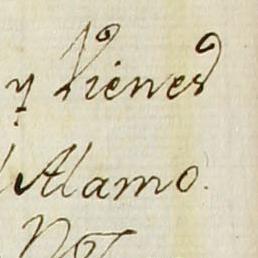 y Vienes
Alamo.